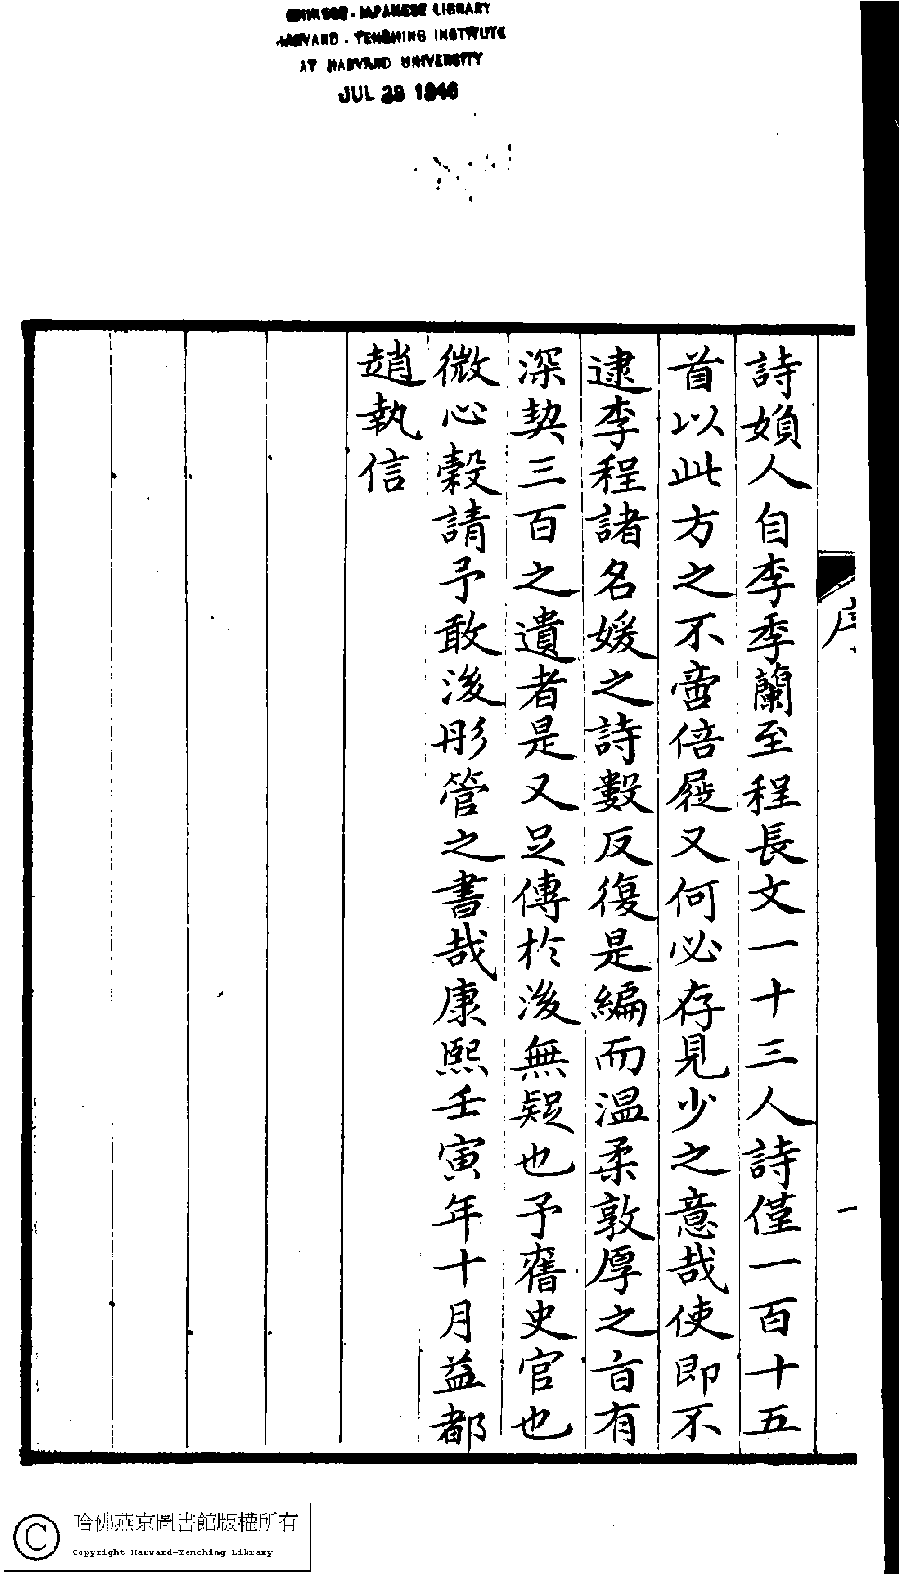 CHINESE-JAPANESE LIBRARY
HARVARD-YENCHING INSTITUTE
AT HARVARD UNIVERSITY
JUL 29 1946
詩媍人自李季蘭至程長文一十三人詩僅一百十五
首以此方之不啻倍屣又何必存見少之意哉使即不
逮李程諸名媛之詩數反復是編而温柔敦厚之㫖有
深契三百之遺者是又足傳於後無疑也予舊史官也
微心穀請予敢後彤管之書哉康熙壬寅年十月益都
趙執信
序
一
哈佛燕京圖書館版權所有
Copyright Harvard-Yenching Library